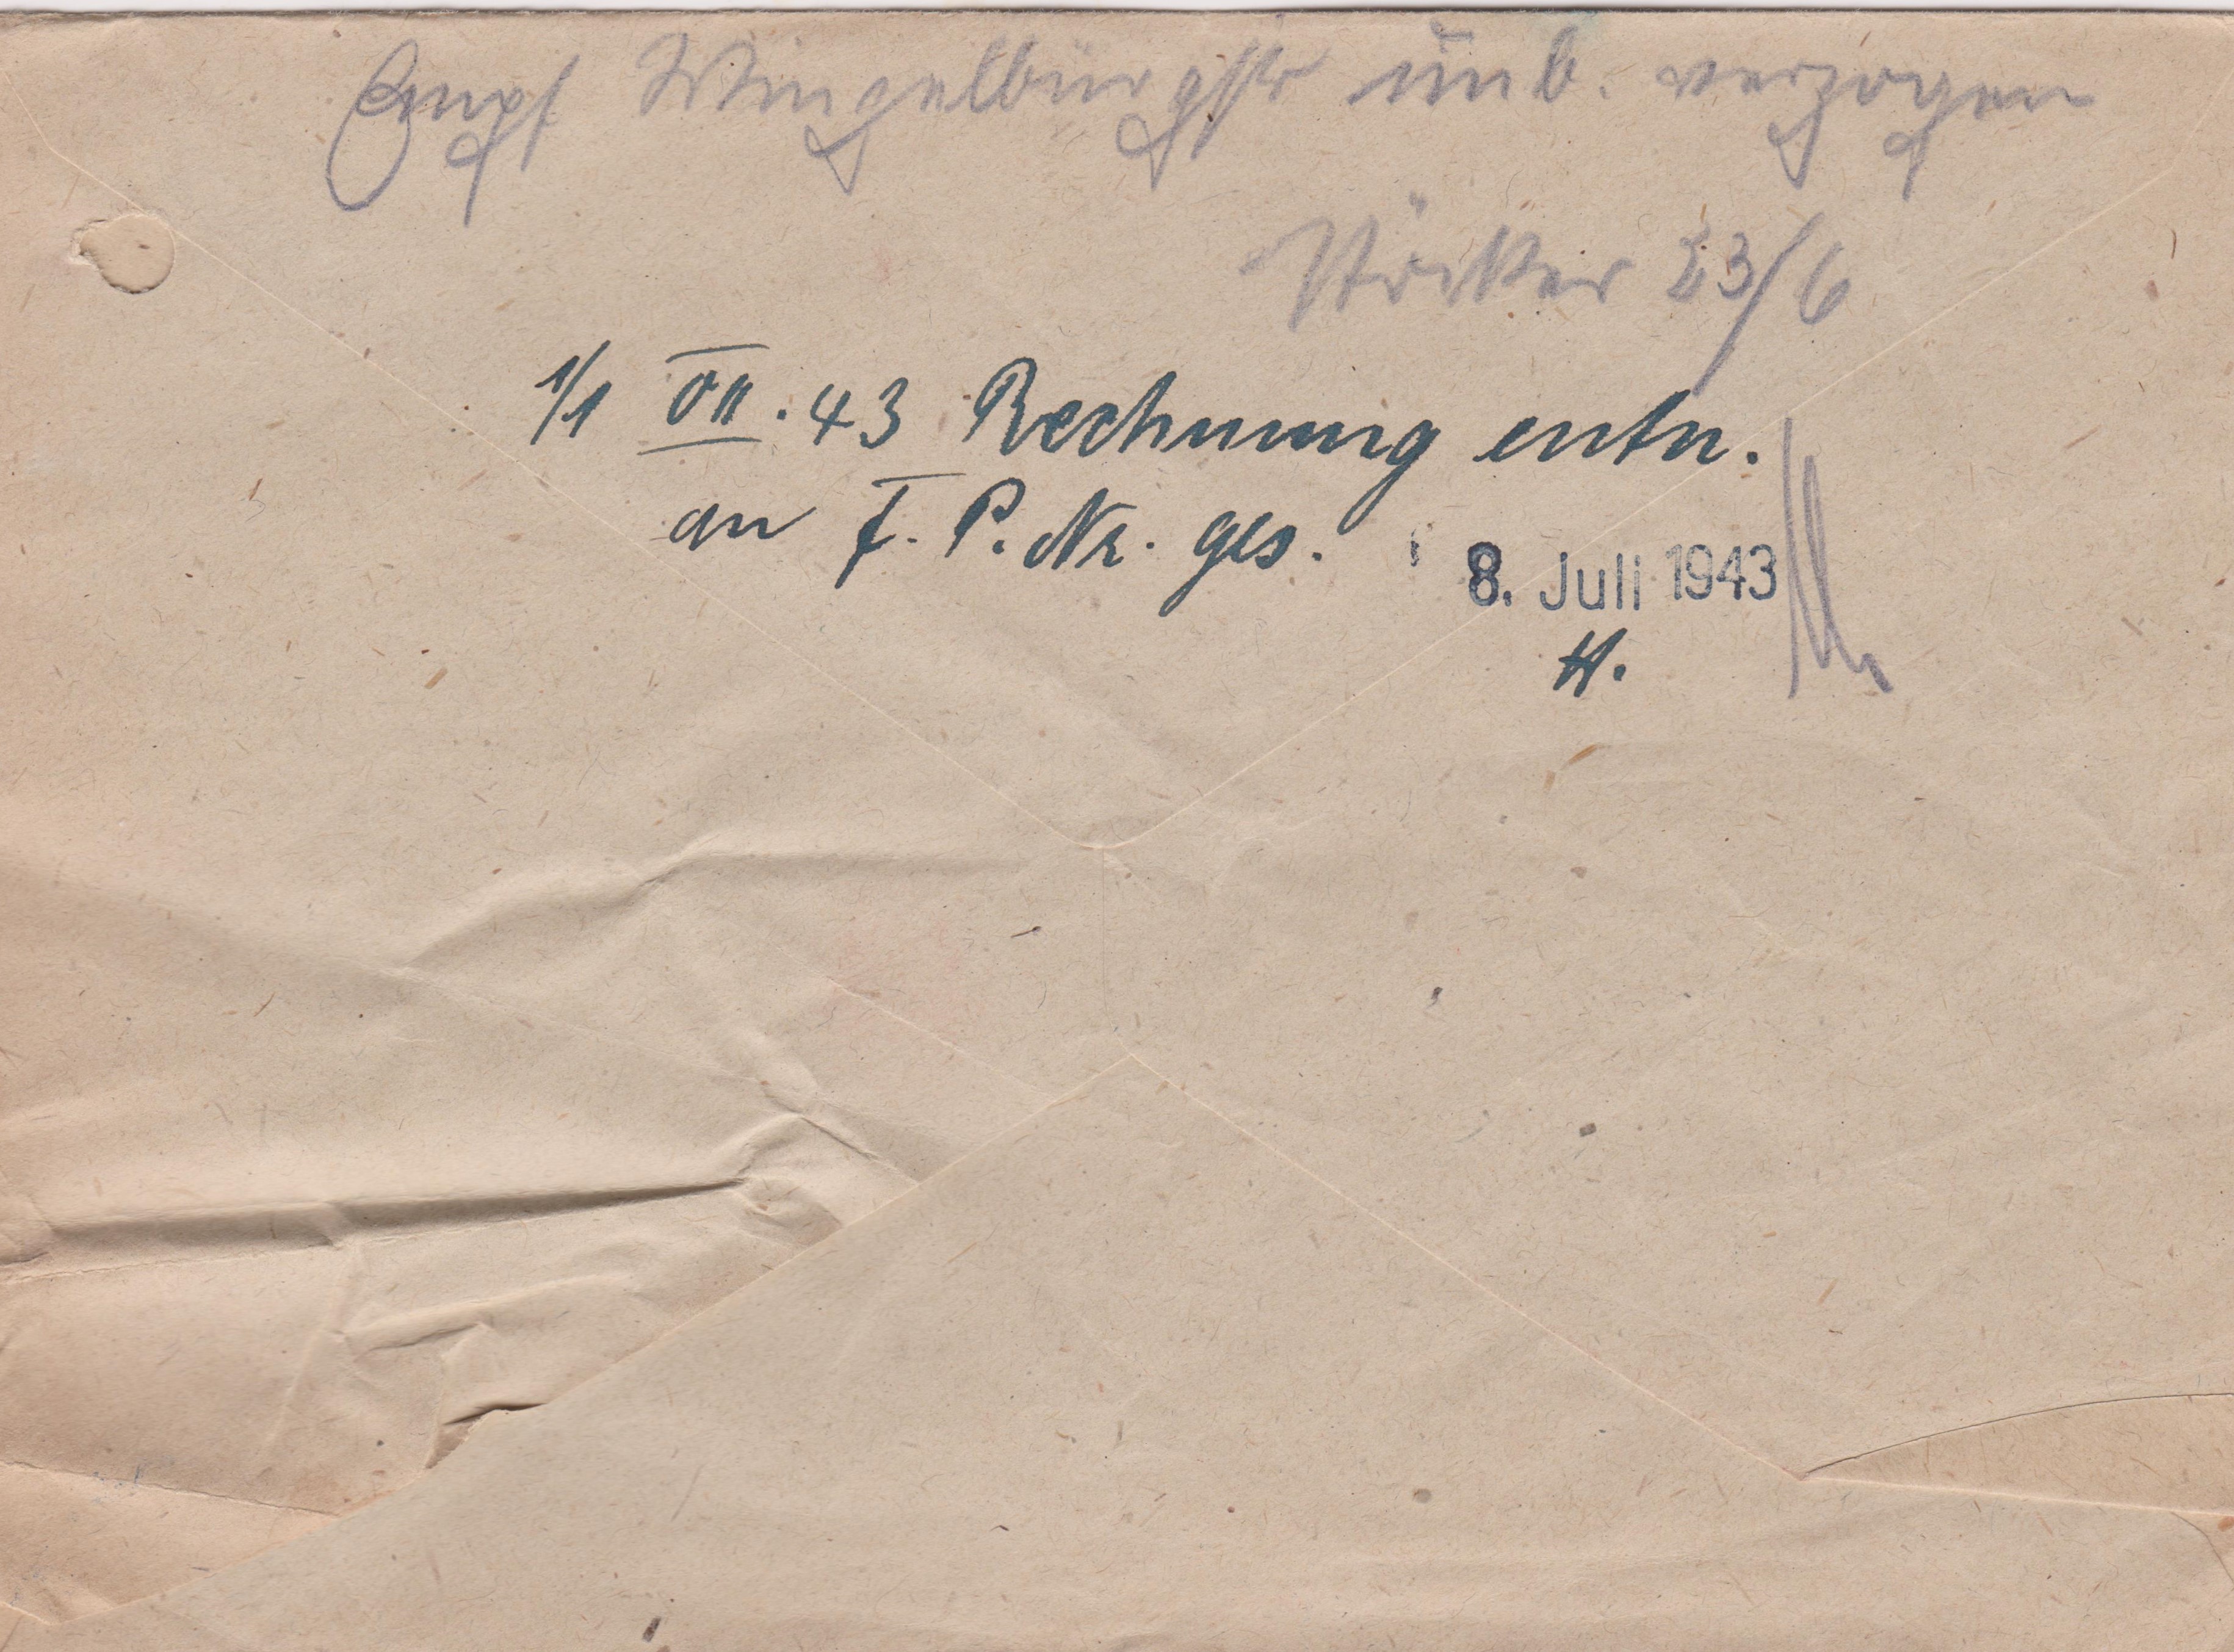 Empf Wingelbürgstr unb. verzogen
23/6
1/1 VII. 43 Rechnung entn.
an F. P. Nr. ges.
8. Juli 1943
H.